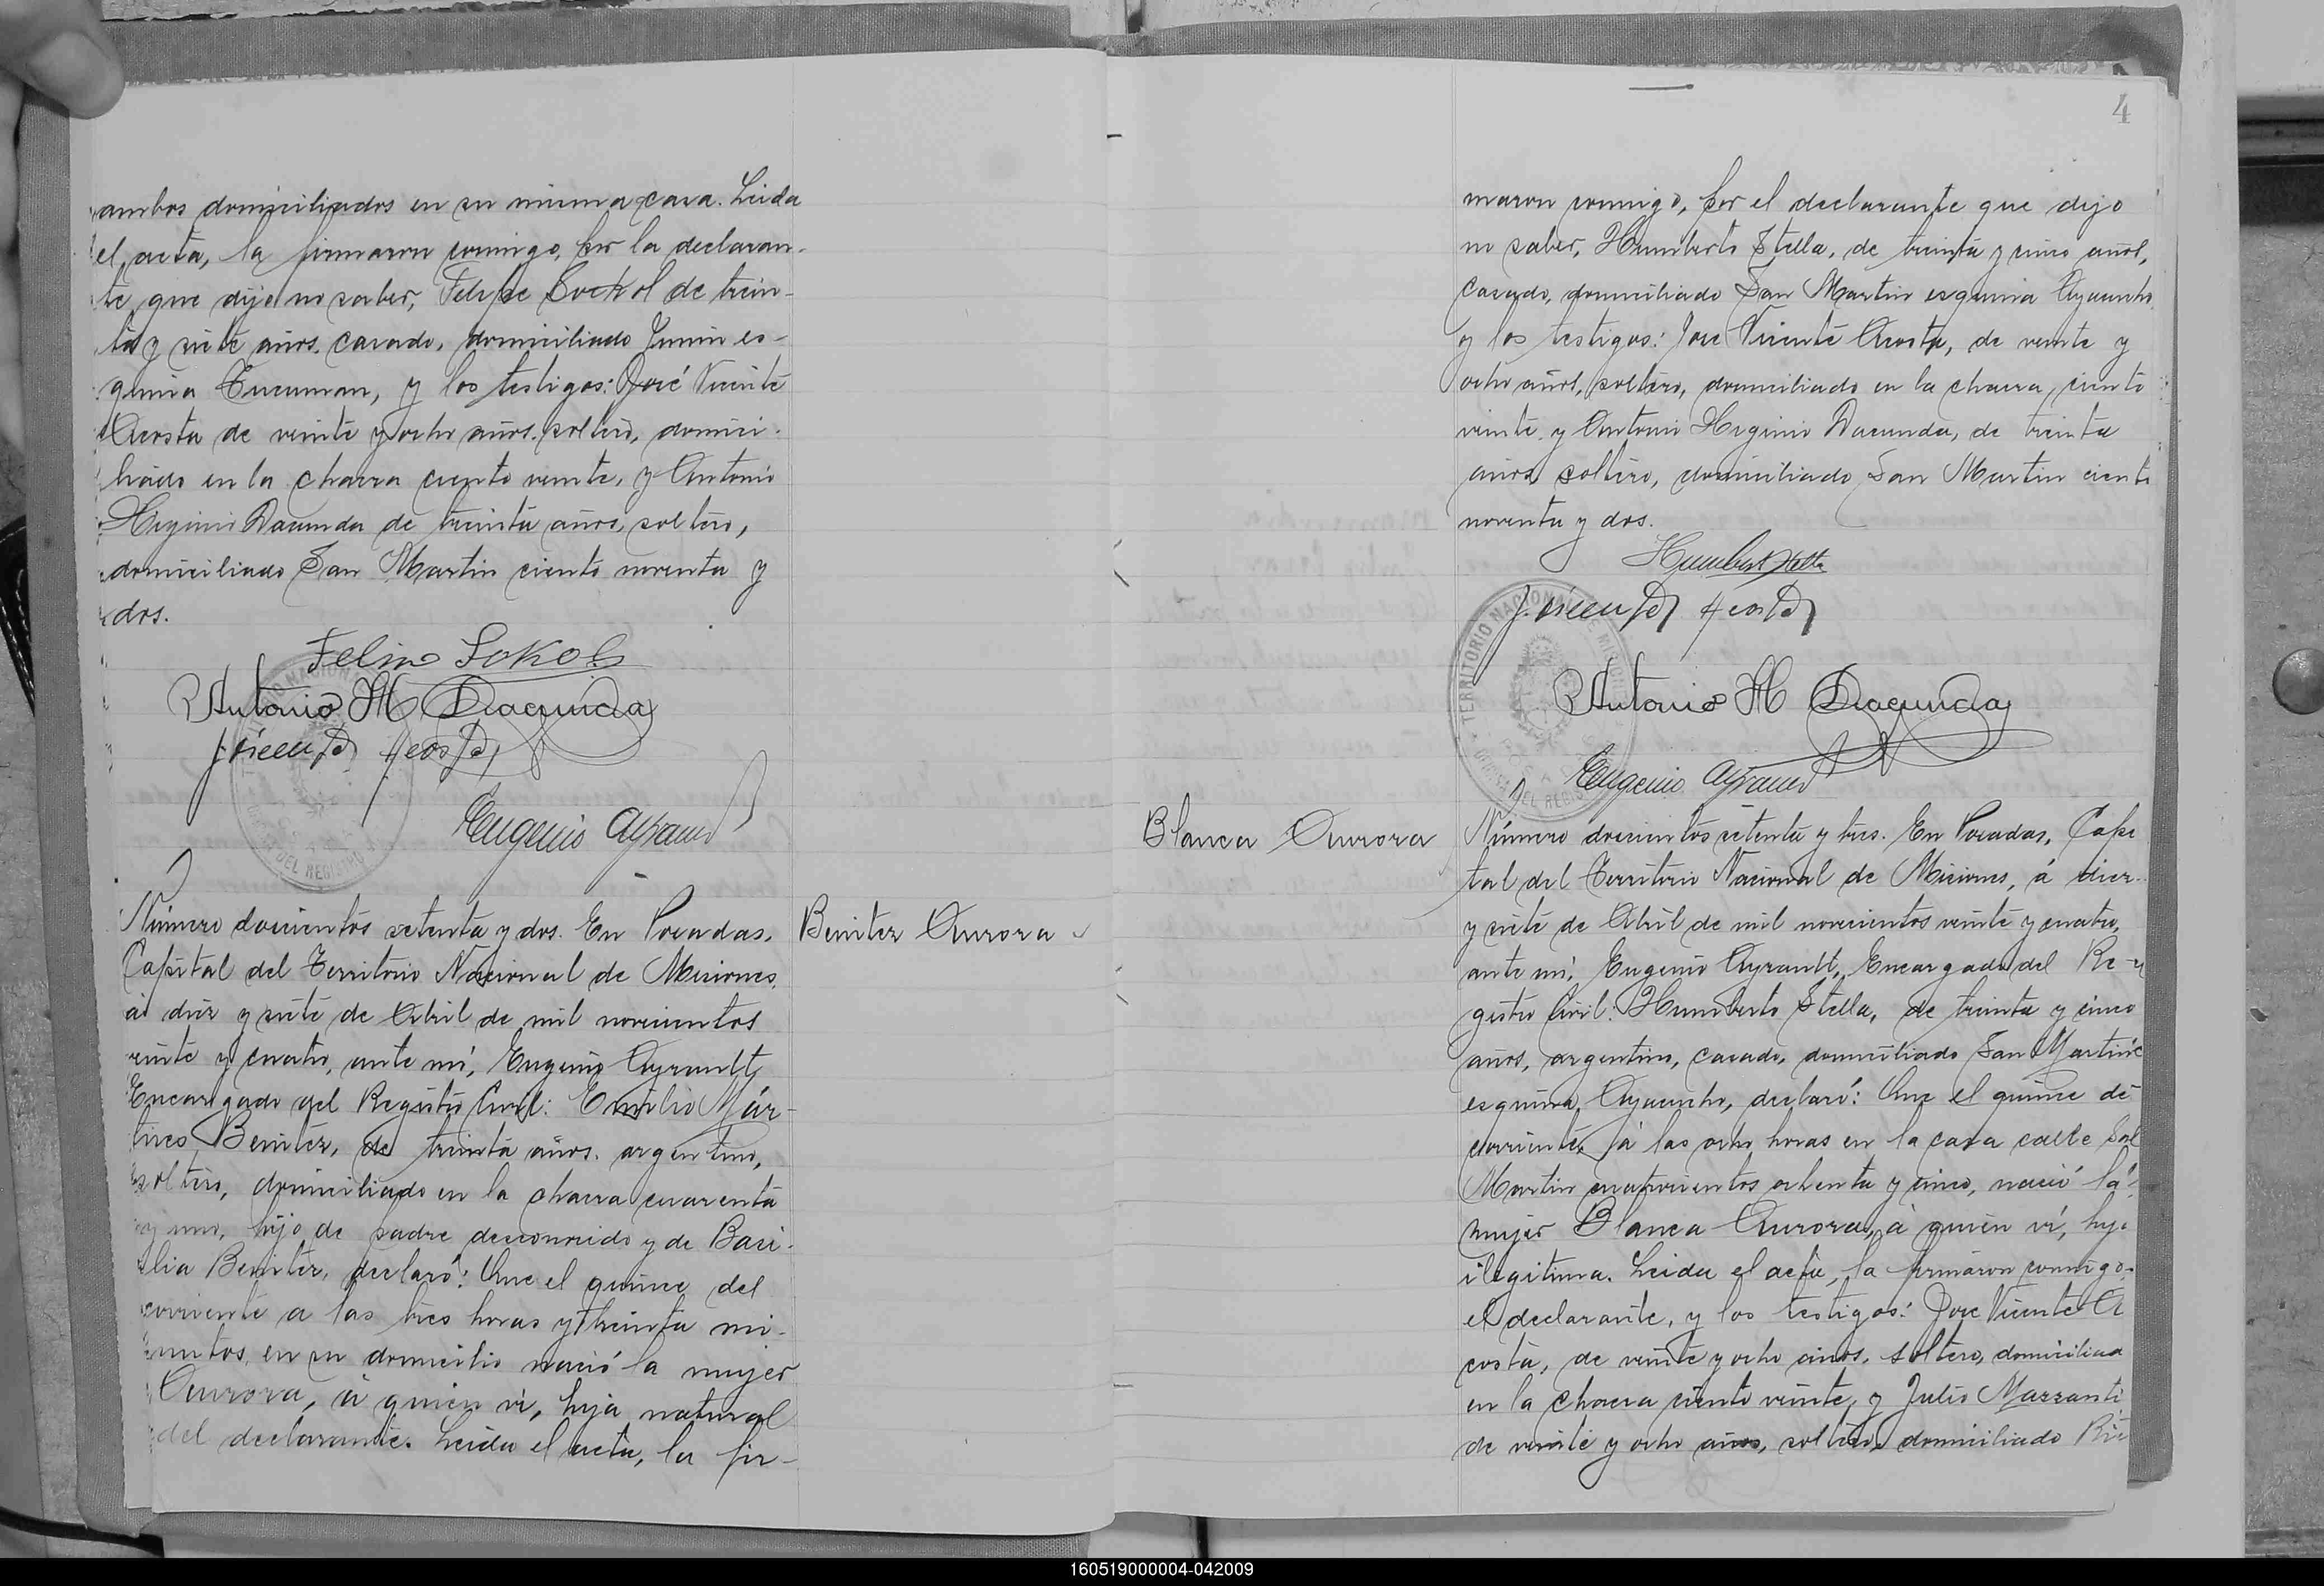 ambos domiciliados en su misma casa. Leida
el acta, la firmaron conmigo, por la declaran-
te que dijo no saber, Felipe Sockol de trein-
ta y siete años, casado, domiciliado Junin es-
quina Tucuman, y los testigos: José Vicente
Acosta de veinte y ocho años, soltero, domici-
liado en la chacra ciento veinte, y Antonio
Higinio Dacunda de treinta años, soltero,
domiciliado San Martin ciento noventa y
dos.
Felipe Sokol
Antonio H Dacunda
J. Vicente Acosta
Eugenio Ayrault
Benitez Aurora
Número doscientos setenta y dos. En Posadas,
Capital del Territorio Nacional de Misiones,
á diez y siete de Abril de mil novecientos
veinte y cuatro, ante mí, Eugenio Ayrault,
Encargado del Registro Civil: Emilio Már-
tires Benitez, de treinta años, argentino,
soltero, domiciliado en la chacra cuarenta
y uno, hijo de padre desconocido y de Basi-
lia Benitez, declaró: Que el quince del
corriente a las tres horas y treinta mi-
nutos, en su domicilio nació la mujer
Aurora, á quien ví, hija natural
del declarante. Leida el acta, la fir-
4
maron conmigo, por el declarante que dijo
no saber, Humberto Stella, de treinta y cinco años,
casado, domiciliado San Martin esquina Ayacucho
y los testigos: José Vicente Acosta, de veinte y
ocho años, soltero, domiciliado en la chacra ciento
veinte y Antonio Higinio Dacunda, de treinta
años soltero, domiciliado San Martin ciento
noventa y dos.
Humberto Stella
J. Vicente Acosta
TERRITORIO NACIONAL DE MISIONES
Antonio H Dacunda
Eugenio Ayrault
Blanca Aurora
Número doscientos setenta y tres. En Posadas, Capi
tal del Territorio Nacional de Misiones, á diez
y siete de Abril de mil novecientos veinte y cuatro,
ante mí, Eugenio Ayrault, Encargado del Re-
gistro Civil: Humberto Stella, de treinta y cinco
años, argentino, casado, domiciliado San Martin
esquina Ayacucho, declaró: Que el quince de
corriente, á las ocho horas en la casa calle San
Martin cuatrocientos ochenta y cinco, nació la
mujer Blanca Aurora, á quien ví, hija
ilegitima. Leida el acta, la firmaron conmigo,
el declarante, y los testigos: José Vicente A
costa, de veinte y ocho años, soltero, domiciliad
en la chacra ciento veinte, y Julio Marzanti
de veinte y ocho años, soltero, domiciliado
160519000004-042009